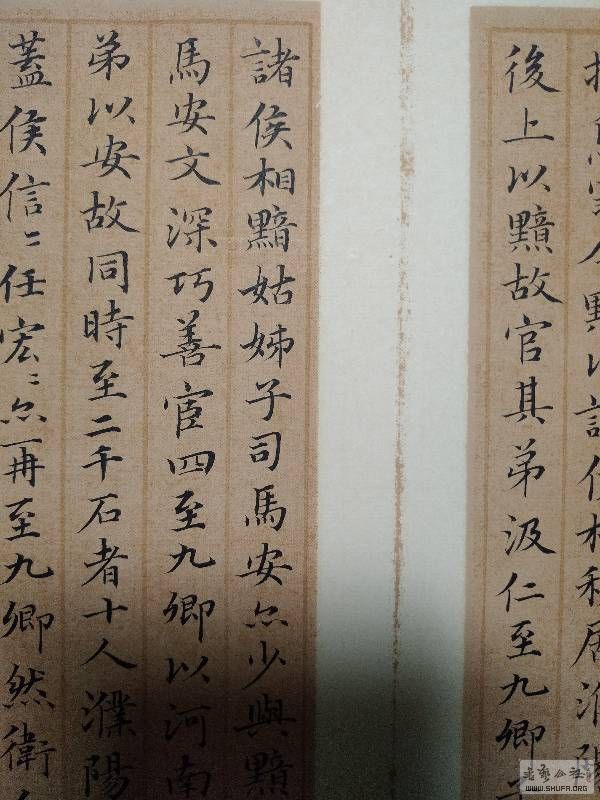 令黯以諸侯相秩居淮陽
後上以黯故官其弟汲仁至九卿子
諸侯相黯姑姊子司馬安亦少與黯
馬安文深巧善宦四至九卿以河南
弟以安故同時至二千石者十人濮陽
蓋侯信〻任宏〻亦再至九卿然衛
WWW.SHUFA.ORG